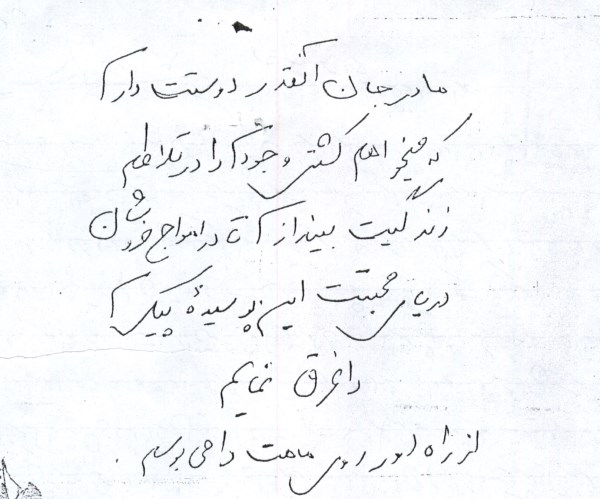 مادر جان آنقدر دوستت دارم
که میخواهم کشتی وجودم را در تلاطم
زندگیت بیندازم تا در امواج خروشان
دریای محبتت این پوسیدهٔ پیکرم
را غرق نمایم
از راه دور روی ماهت را می بوسم .